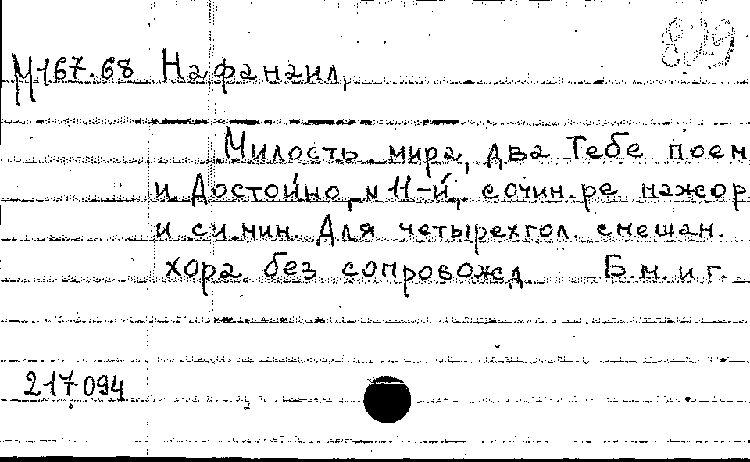 829
М 167.68 Нафанаил,
Милость мира, два Тебе поем
и Достойно, № 11-й, сочин. ре мажор
и си мин. Для четырехгол. смешан.
хора без сопровожд. Б.м. и г.
217094